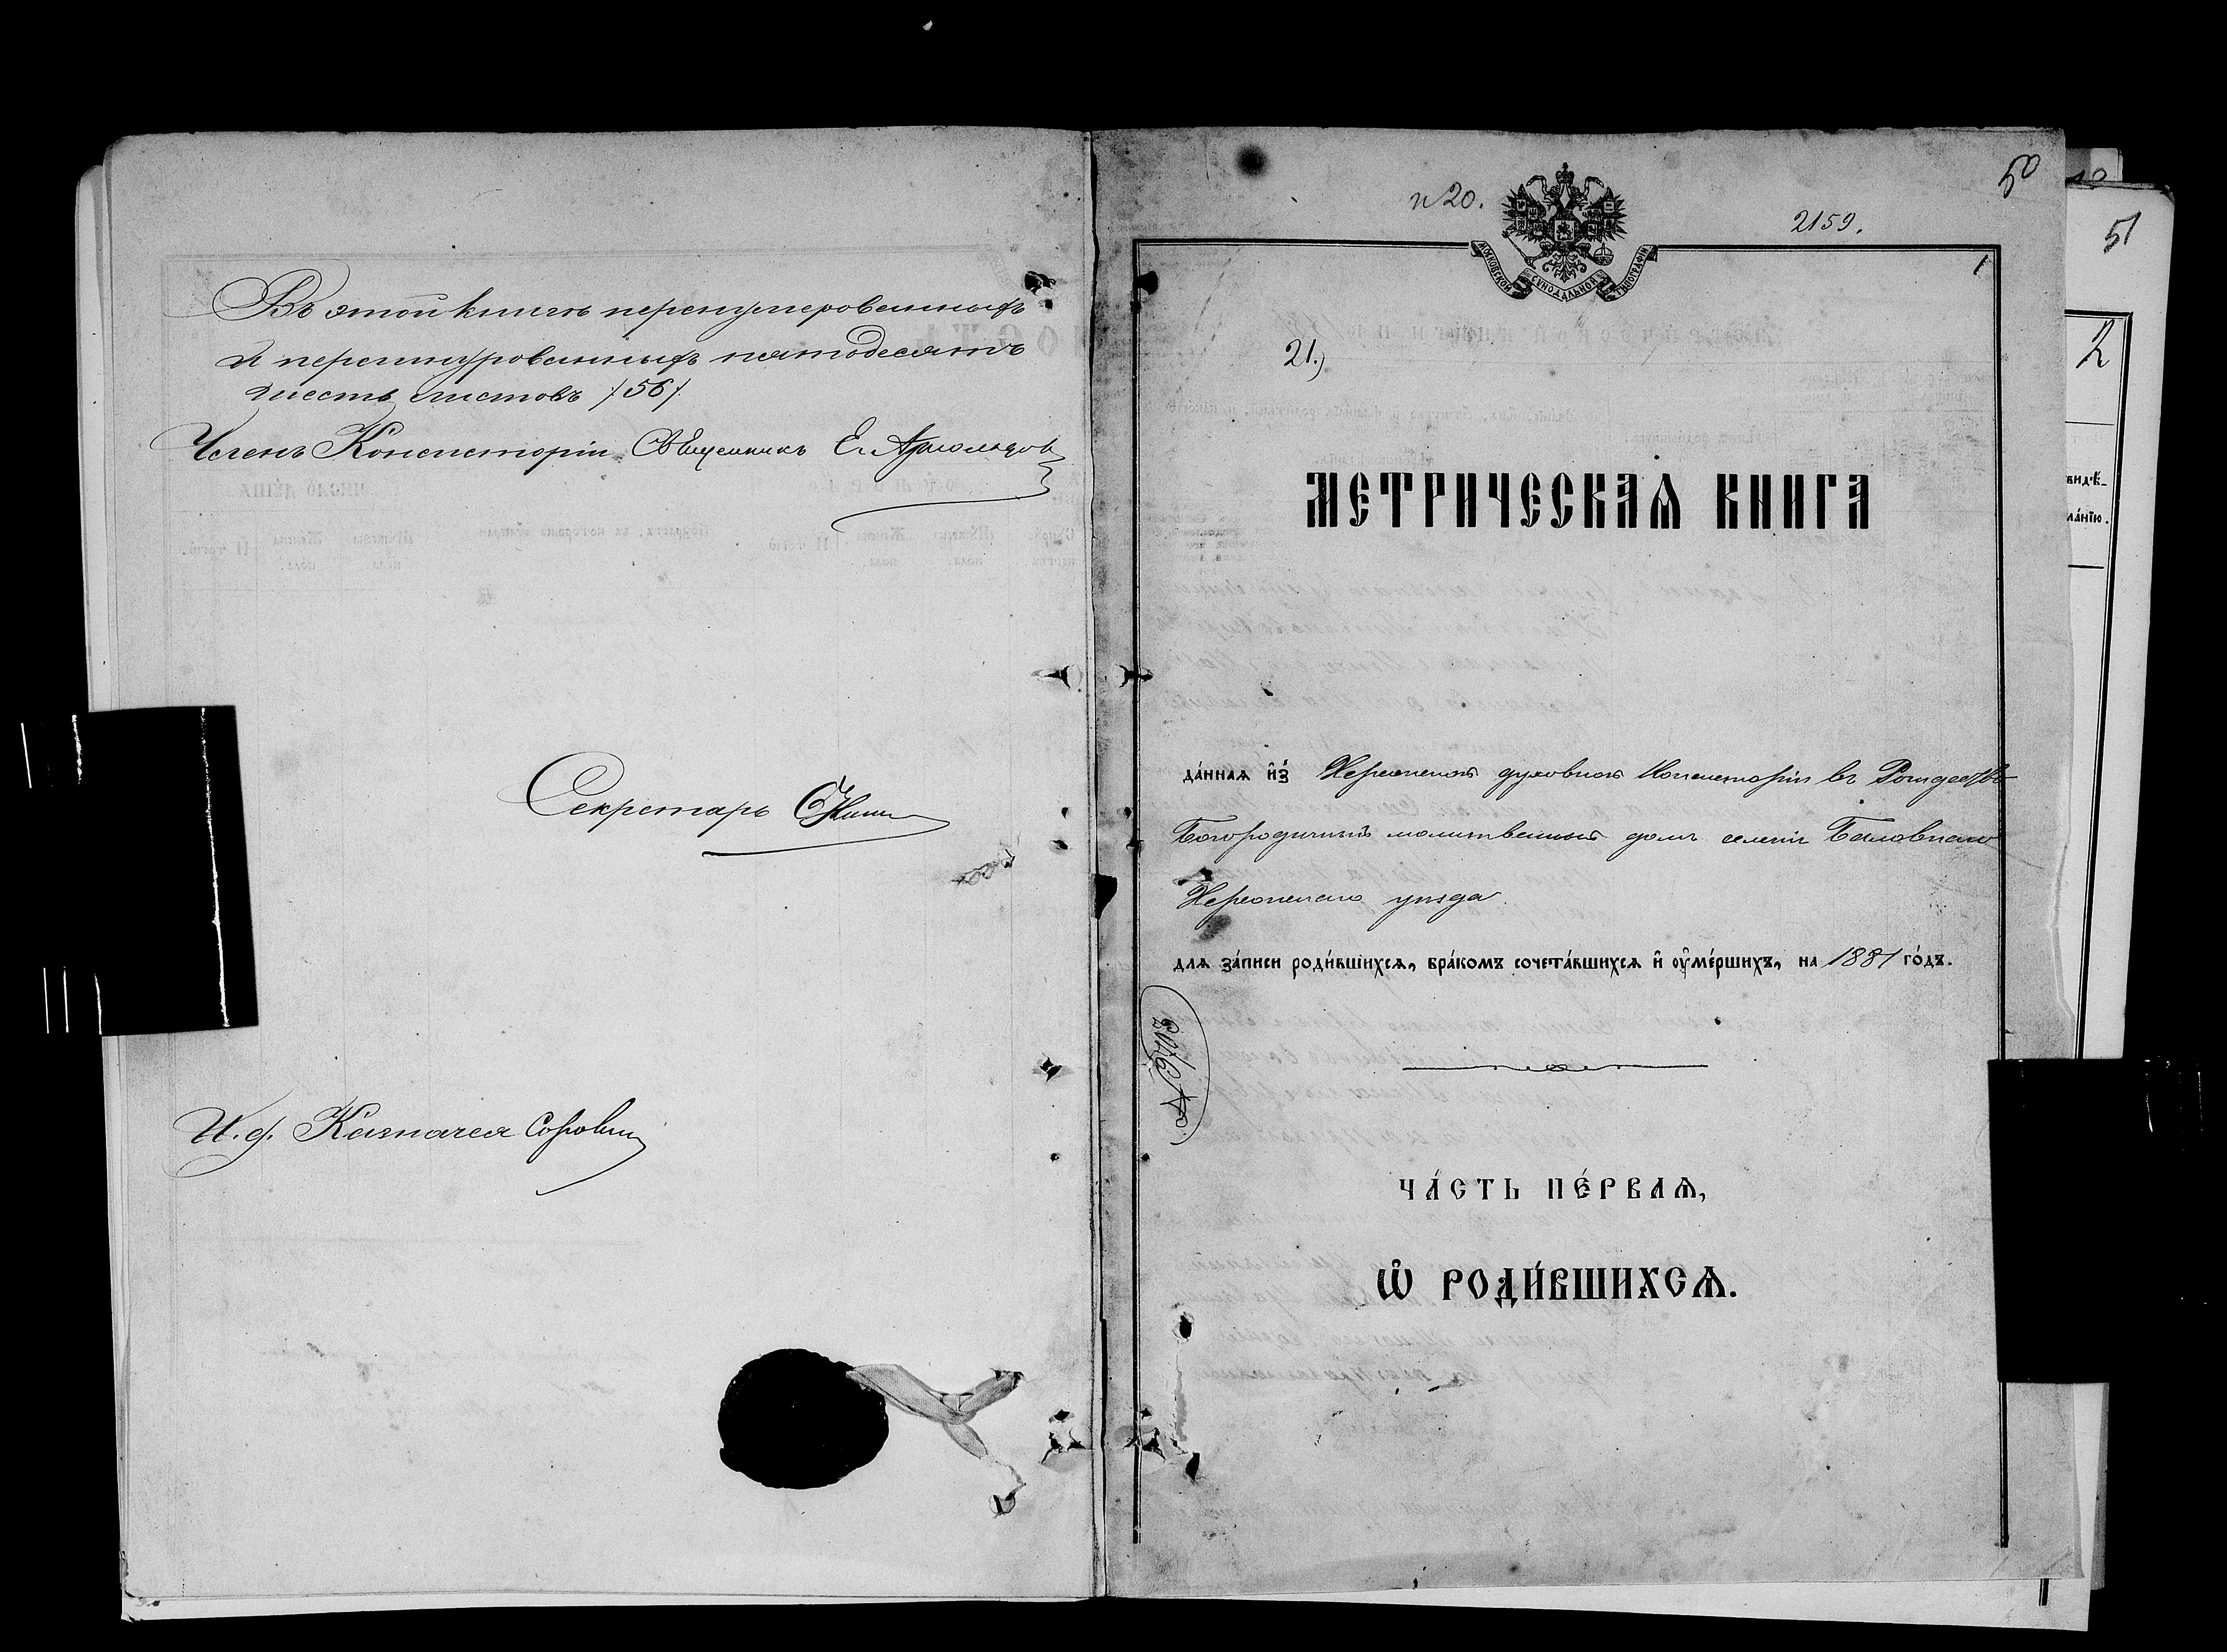 Въ этой книгѣ перенумерованныхъ
и перешнурованныхъ пятьдесятъ
шесть листовъ /56/.
Членъ Консисторіи Священникъ Е. Арнольдов
Секретарь
И. д. Казначея
50
51
2
n 20.
2159.
МОСКОВСКОЙ СѴНОДАЛЬНОЙ ТИПОГРАФІИ
1
21.)
МЕТРИЧЕСКАѦ КНИГА
да́ннаѧ и҆з̾ Херсонской духовной Консисторіи въ Рождество
Богородичный молитвенный домъ селенія
Херсонскаго уѣзда
для за́писи роди́вшихсѧ, бра́комъ сочета́вшихсѧ и҆ ѹ҆ме́ршихъ, на 1881 го́дъ.
№ 9703
ЧА́СТЬ ПЕ́РВАѦ,
Ѽ РОДИ́ВШИХСѦ.
видѣ-
ла́нїю.